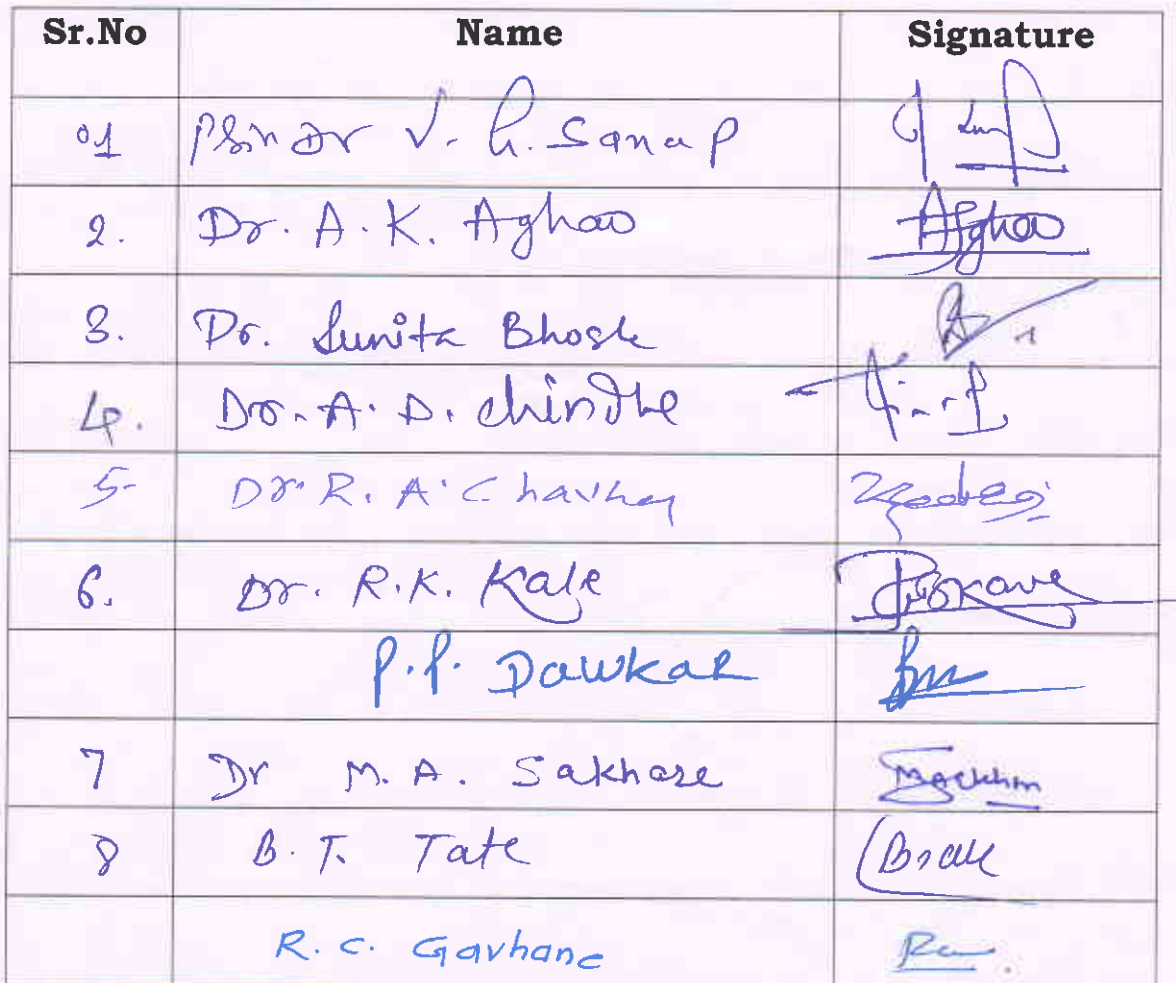 Sr.No Name Signature
01 Prin Dr V. G. Sanap
2. Dr. A. K. Aghav Aghav
3. Dr. Sunita Bhosle
4. Dr. A. D. Chindhe
5- Dr. R. A. Chavhan
6. Dr. R.K. Kale
P.P. Dawkar
7 Dr M.A. Sakhare
8 B.T. Tate
R.C. Gavhane